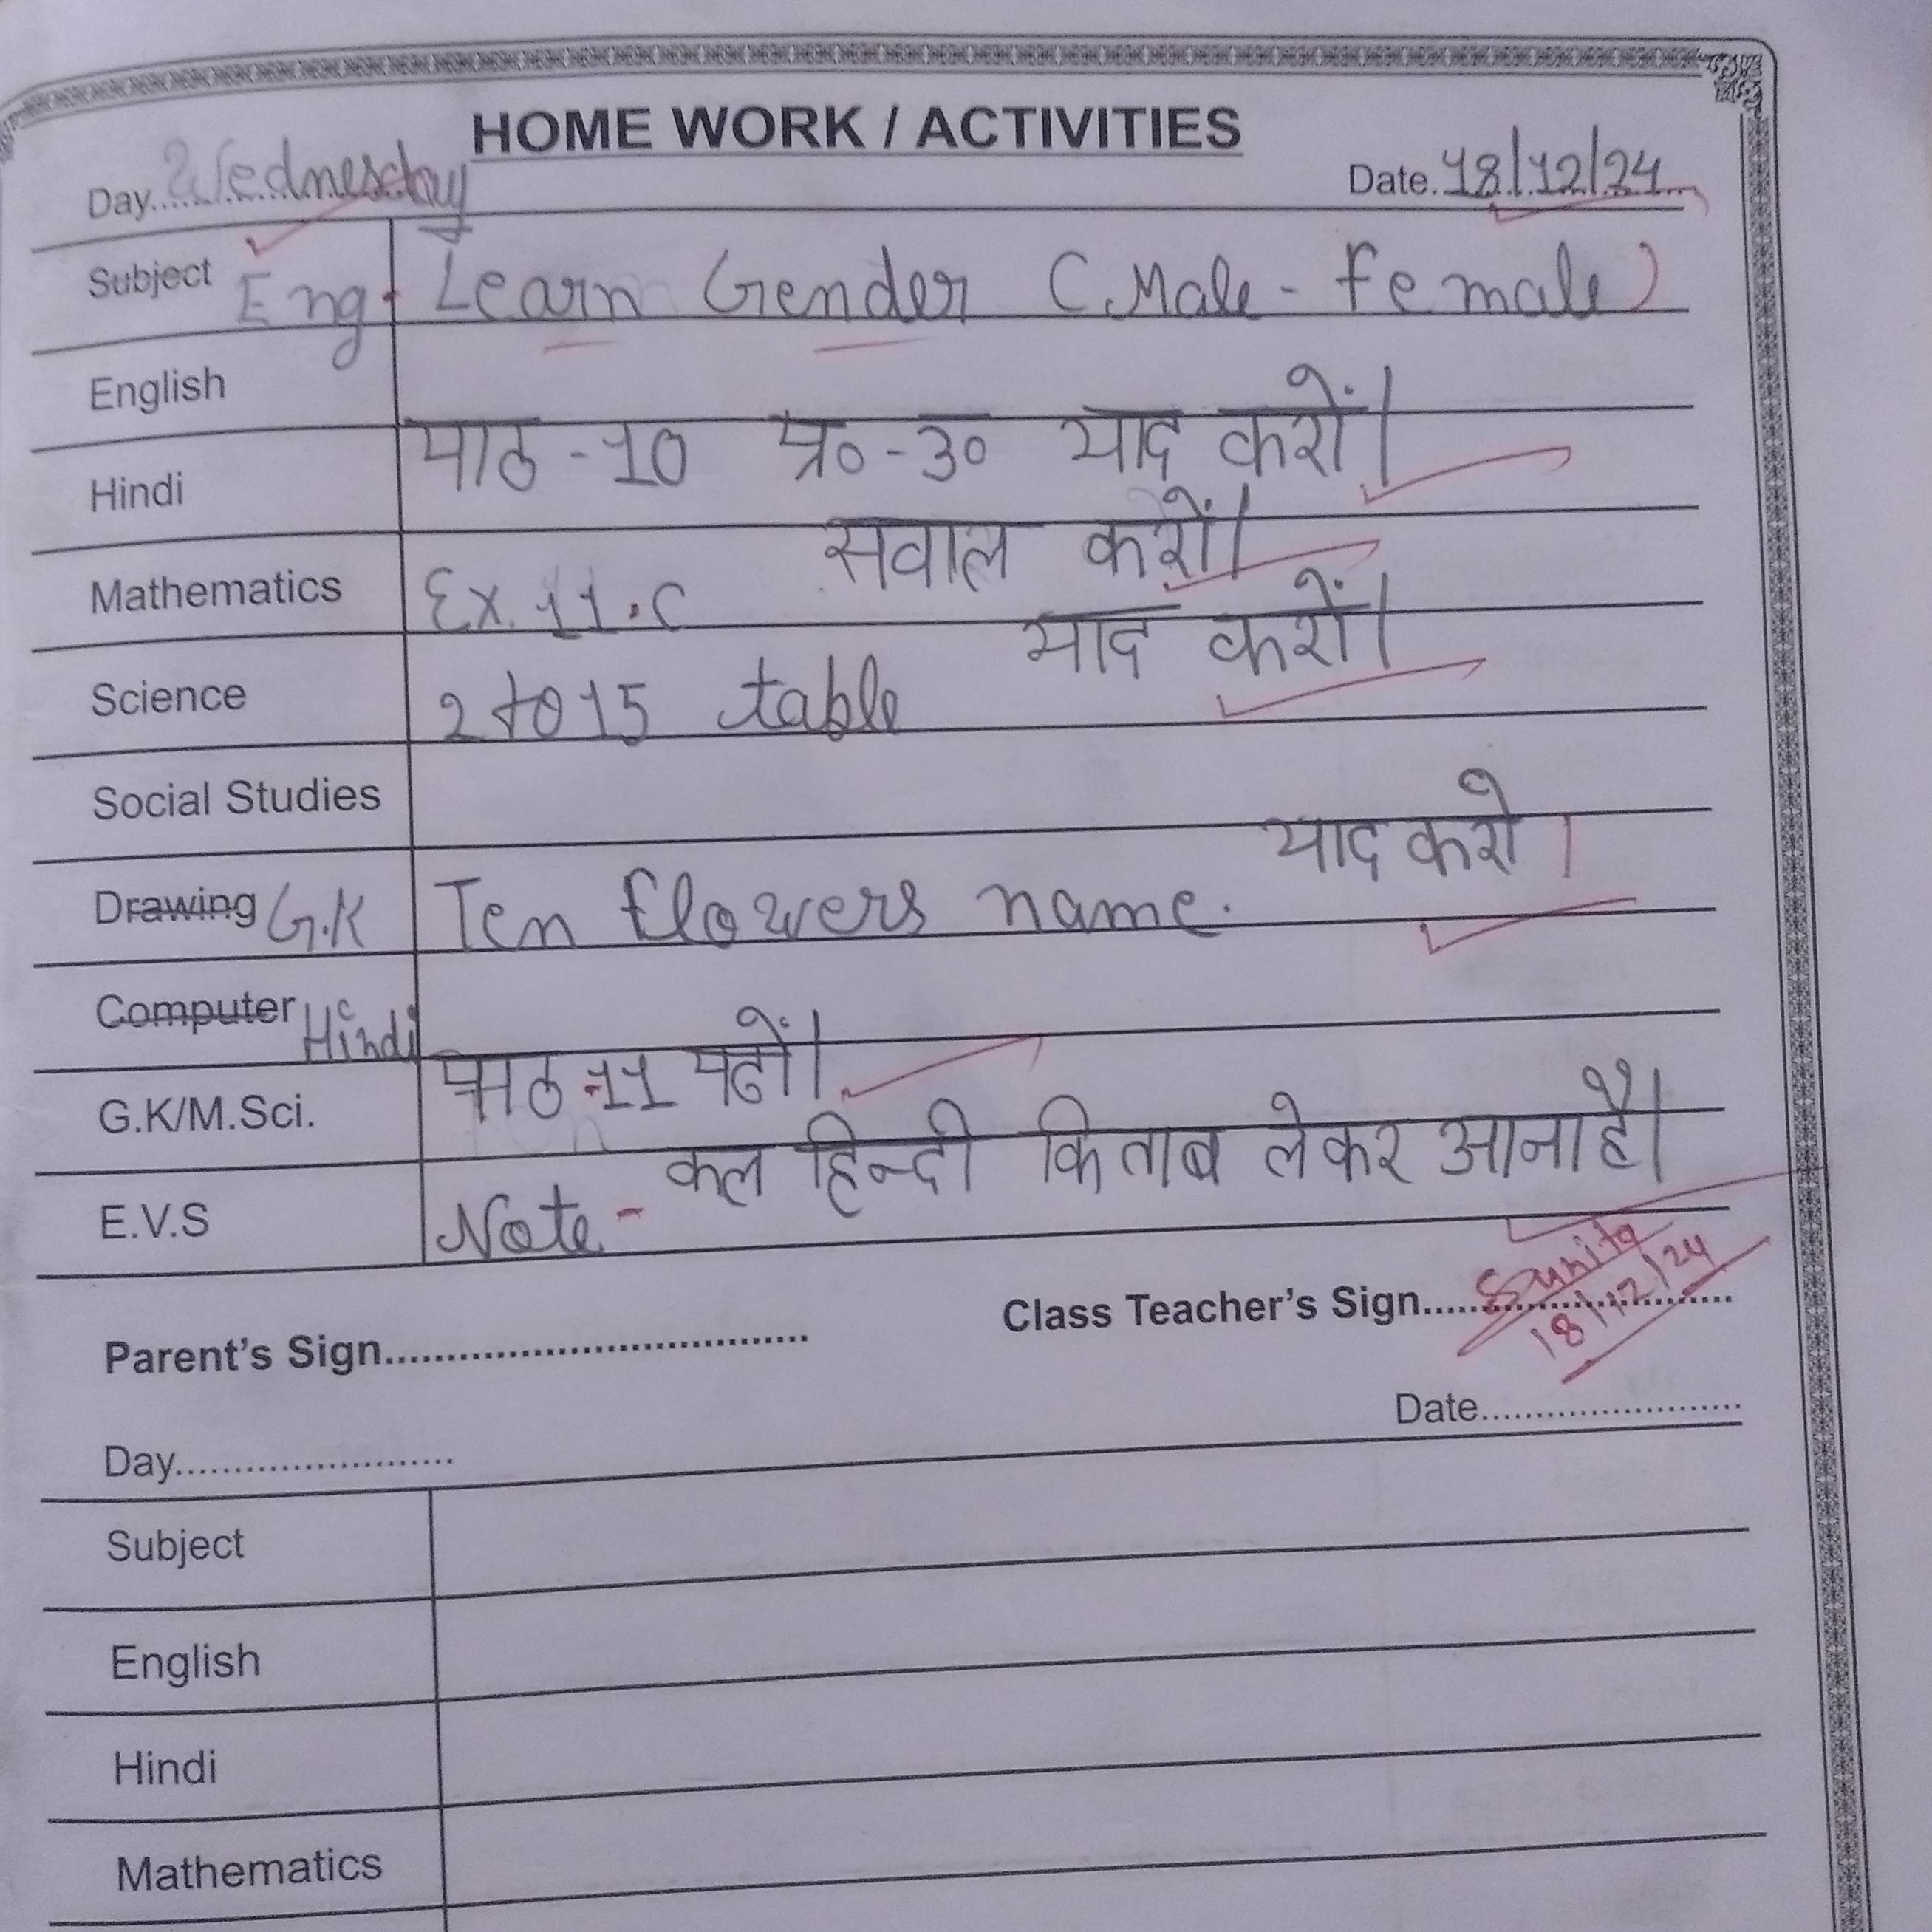 HOME WORK / ACTIVITIES
Day.....Wednesday
Date.18/12/24
Subject Eng. Learn Gender (Male - Female)
English
Hindi पाठ - 10 प्र० - उ० याद करों।
Mathematics Ex. 11.C सवाल करों।
Science 2 to 15 table याद करों।
Social Studies
Drawing G.K Ten flowers name. याद करो।
Computer Hindi
G.K/M.Sci. पाठ - 11 पढों।
E.V.S Note - कल हिन्दी किताब लेकर आना है।
Parent's Sign.................................... Class Teacher's Sign..... Sunita
18/12/24
Day........................ Date........................
Subject
English
Hindi
Mathematics